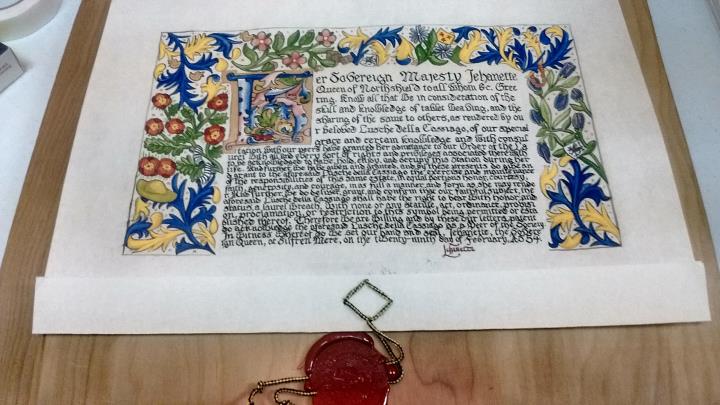 Her Sovereign Majesty Jehanette
Queen of Northshield to all whom &c. Gree
ting. Know all that We in consideration of the
skill and knowledge of tablet weaving, and the
sharing of the same to others, as rendered by ou
r beloved Lusche della Cassiago, of our special
grace and certain knowledge and with consul
tation with our peers have granted her admittance to our Order of the La
urel with all and every sort of rights and privileges associated therewith
to be acknowledged to have, hold, enjoy, and occupy this station during her
life. And further we have given and granted, and by these presents do give an
d grant to the aforesaid Lusche della Cassiago the exercise and maintenance
of the responsibilities of this same estate, equal before honor, courtesy,
faith, generosity, and courage, in as full a manner and form as she may rende
r. Also further, we do ensure, grant, and confirm that our faithful subject, the
aforesaid Lusche della Cassiago shall have the right to bear with honor and
status a laurel wreath. With none or any statute, act, ordinance, provisi
on, proclamation, or restriction to this symbol being permitted or esta
blished thereof. Therefore we are willing and by these our letters patent
do acknowledge the aforesaid Lusche della Cassiago as a Peer of the Society.
In witness whereof do we set our hand and seal, Jehanette, the Sovere
ign Queen, at Silfren Mere, on the twenty-ninth day of February, A.S. 54.
Jehanette